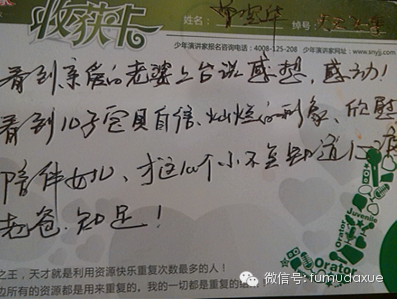 收获卡
姓名: 绰号:
少年演讲家报名咨询电话: 4008-125-208 少年演讲家网址: www.snyjj.com
看到亲爱的老婆上台说感想,感动!
看到儿子宝贝自信、灿烂的形象、欣慰
陪伴女儿、才这个小不点知道心疼
老爸.知足!
之王,天才就是利用资源快乐重复次数最多的人!
边所有的资源都是用来重复的,我的一切都是重复的
Juvenile
Orator
Orator
微信号: fumudaxue